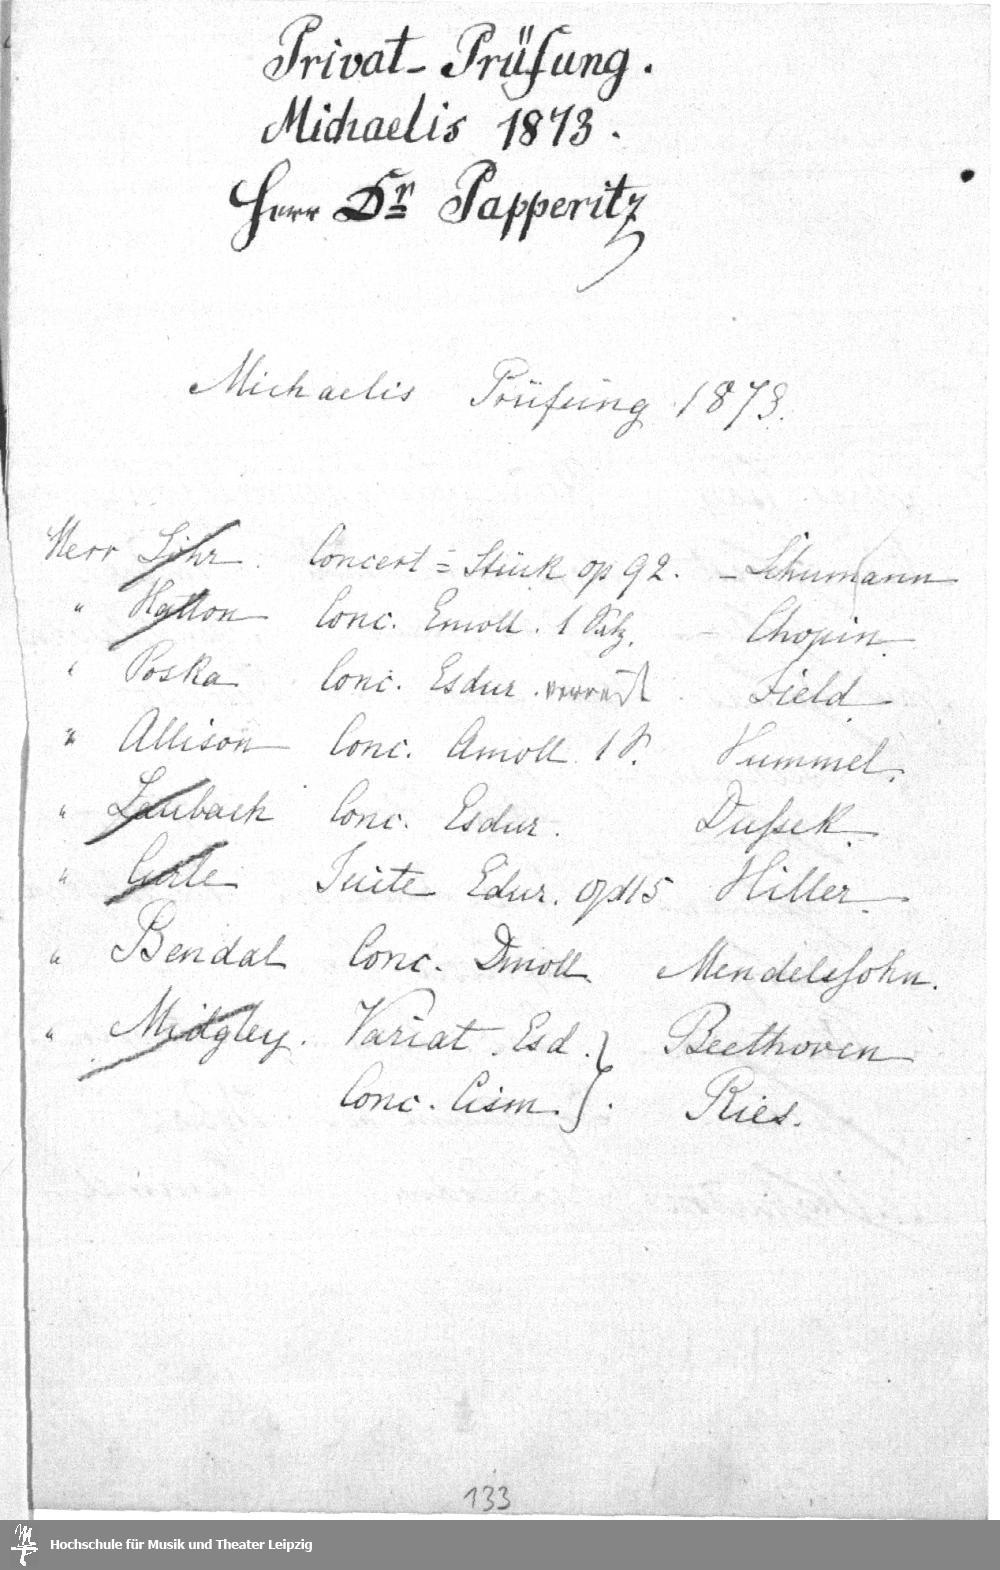 Privat-Prüfung.
Michaelis 1873.
Herr Dr Papperitz
Michaelis Prüfung 1873.
Herr Löhr. Concert=Stück op 92. – Schumann
" Hatton Conc. Emoll. 1 Satz. – Chopin.
" Poska Conc. Esdur. verreist. Field.
" Allison Conc. Amoll 1 S. Hummel.
" Laubach Conc. Esdur. Dußek.
" Suite Edur. op 15 Hiller.
" Bendal Conc. Dmoll. Mendelsſohn.
" Midgley. Variat. Esd. } Beethoven
Conc. Cism. } . Ries.
133
Hochschule für Musik und Theater Leipzig